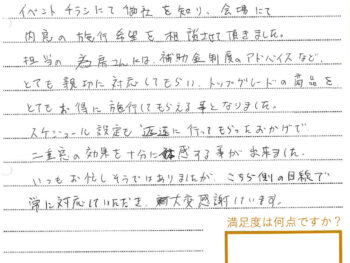 イベントチラシにて御社を知り、会場にて
内窓の施行希望を相談させて頂きました。
担当の さんには、補助金制度のアドバイスなど、
とても親切に対応してもらい、トップグレードの商品を
とてもお得に施行してもらえる事となりました。
スケジュール設定も迅速に行ってもらったおかげで
二重窓の効果を十分に体感する事が出来ました。
いつもお忙しそうではありましたが、こちら側の目線で
常に対応していただき、大変感謝しています。
満足度は何点ですか?